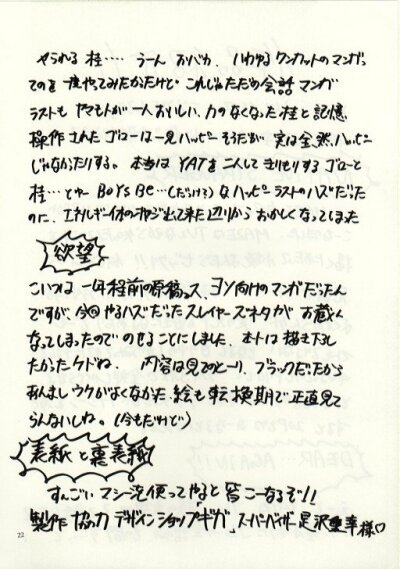 やられる 桂‥‥ うーん おバカ。 いわゆるワンカットのマンガっ
てのを一度やってみたかったけど・これじゃただの会話マンガ
ラストも ヤマモトが一人おいしい、力のなくなった桂と記憶
操作されたゴローは一見ハッピーそうだが 実は全然ハッピー
じゃなかったりする。 本当は YATを こんして きりもりするゴローと
桂…とゆー BOYS BE…(しだけろ)なハッピーラストのハズだった
のに、エネルギーイオの冷が出て来た辺りから おかしくなってしまった
欲望
こいつは 一年程前の原稿っス、ヨソ向けのマンガだったん
ですが、今回やるハズだったスレイヤーズネタが お蔵入
なってしまったので のせることにしました。ホントは描き下し
たかったケドね。 内容は見てのとーり、ブラックだったから
あんましウケがよくなかった・絵も転換期で正直見て
らんないしね。(今もだけど)
表紙と裏表紙
すんごい マシーンを使ってやると 皆こーなるぞ!!
製作協力 デザインショップ「ギガ」スーパーバイザー 是沢 重幸様♡
22